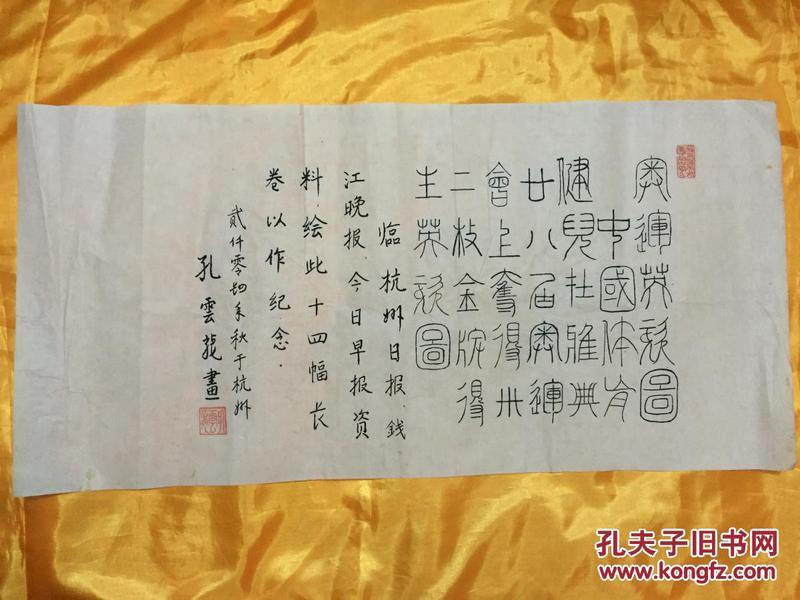 奥運英姿圖
中國体育
健兒在雅典
廿八届奥運
會上奪得卅
二枚金牌得
主英姿圖
臨杭州日报.钱
江晚报.今日早报资
料.绘此十四幅长
卷以作纪念.
貳仟零四年秋于杭州
孔雲龍畫
孔夫子旧书网
www.kongfz.com